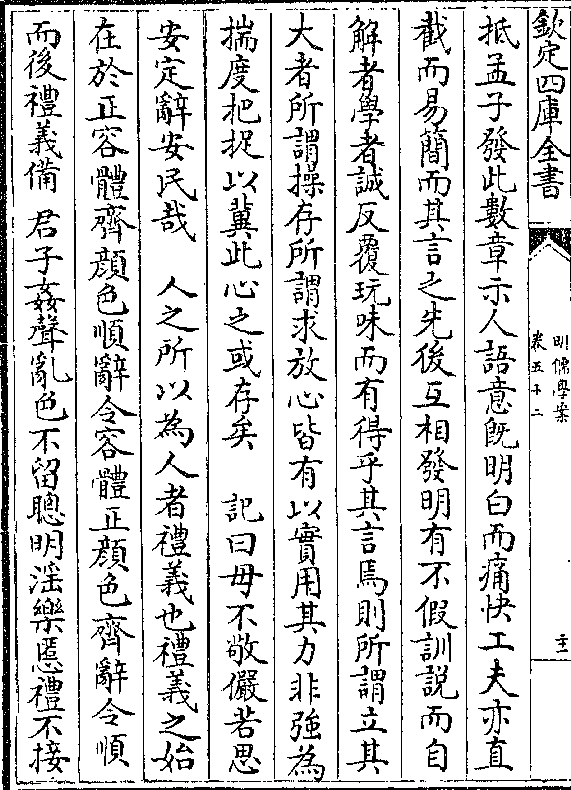 欽定四庫全書
明儒學案
卷五十二
抵孟子發此數章示人語意既明白而痛快工夫亦直
截而易簡而其言之先後互相發明有不假訓説而自
解者學者誠反覆玩味而有得乎其言焉則所謂立其
大者所謂操存所謂求放心皆有以實用其力非強為
揣度把捉以冀此心之或存矣　記曰毋不敬儼若思
安定辭安民哉　人之所以為人者禮義也禮義之始
在於正容體齊顔色順辭令容體正顔色齊辭令順
而後禮義備　君子姦聲亂色不留聰明淫樂慝禮不接